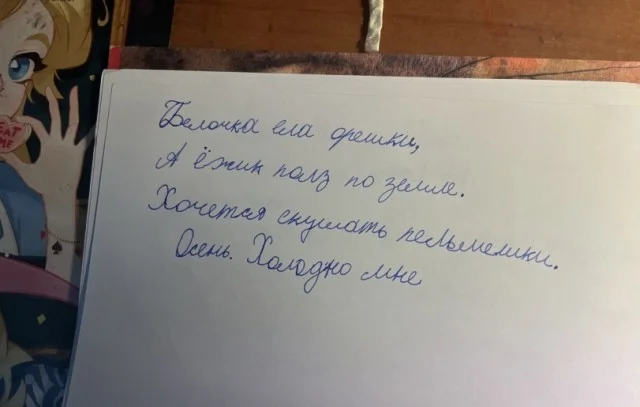 EAT
ME
Белочка ела орешки,
А ёжик полз по земле.
Хочется скушать пельмешки.
Осень. Холодно мне